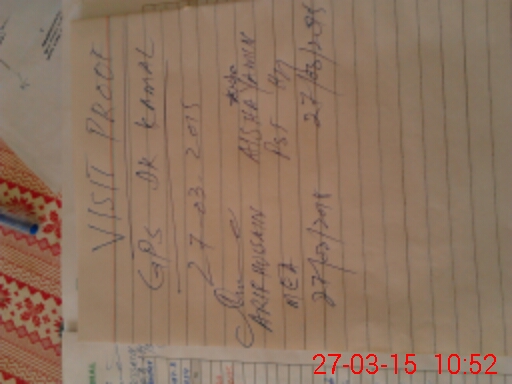 VISIT PROOF
GPS DK KAMAL
27-03-2015
ARIF HUSAIN
MEA
27/03/2015
AISHA YAMIN
PST
27/03/2015
27-03-15 10:52